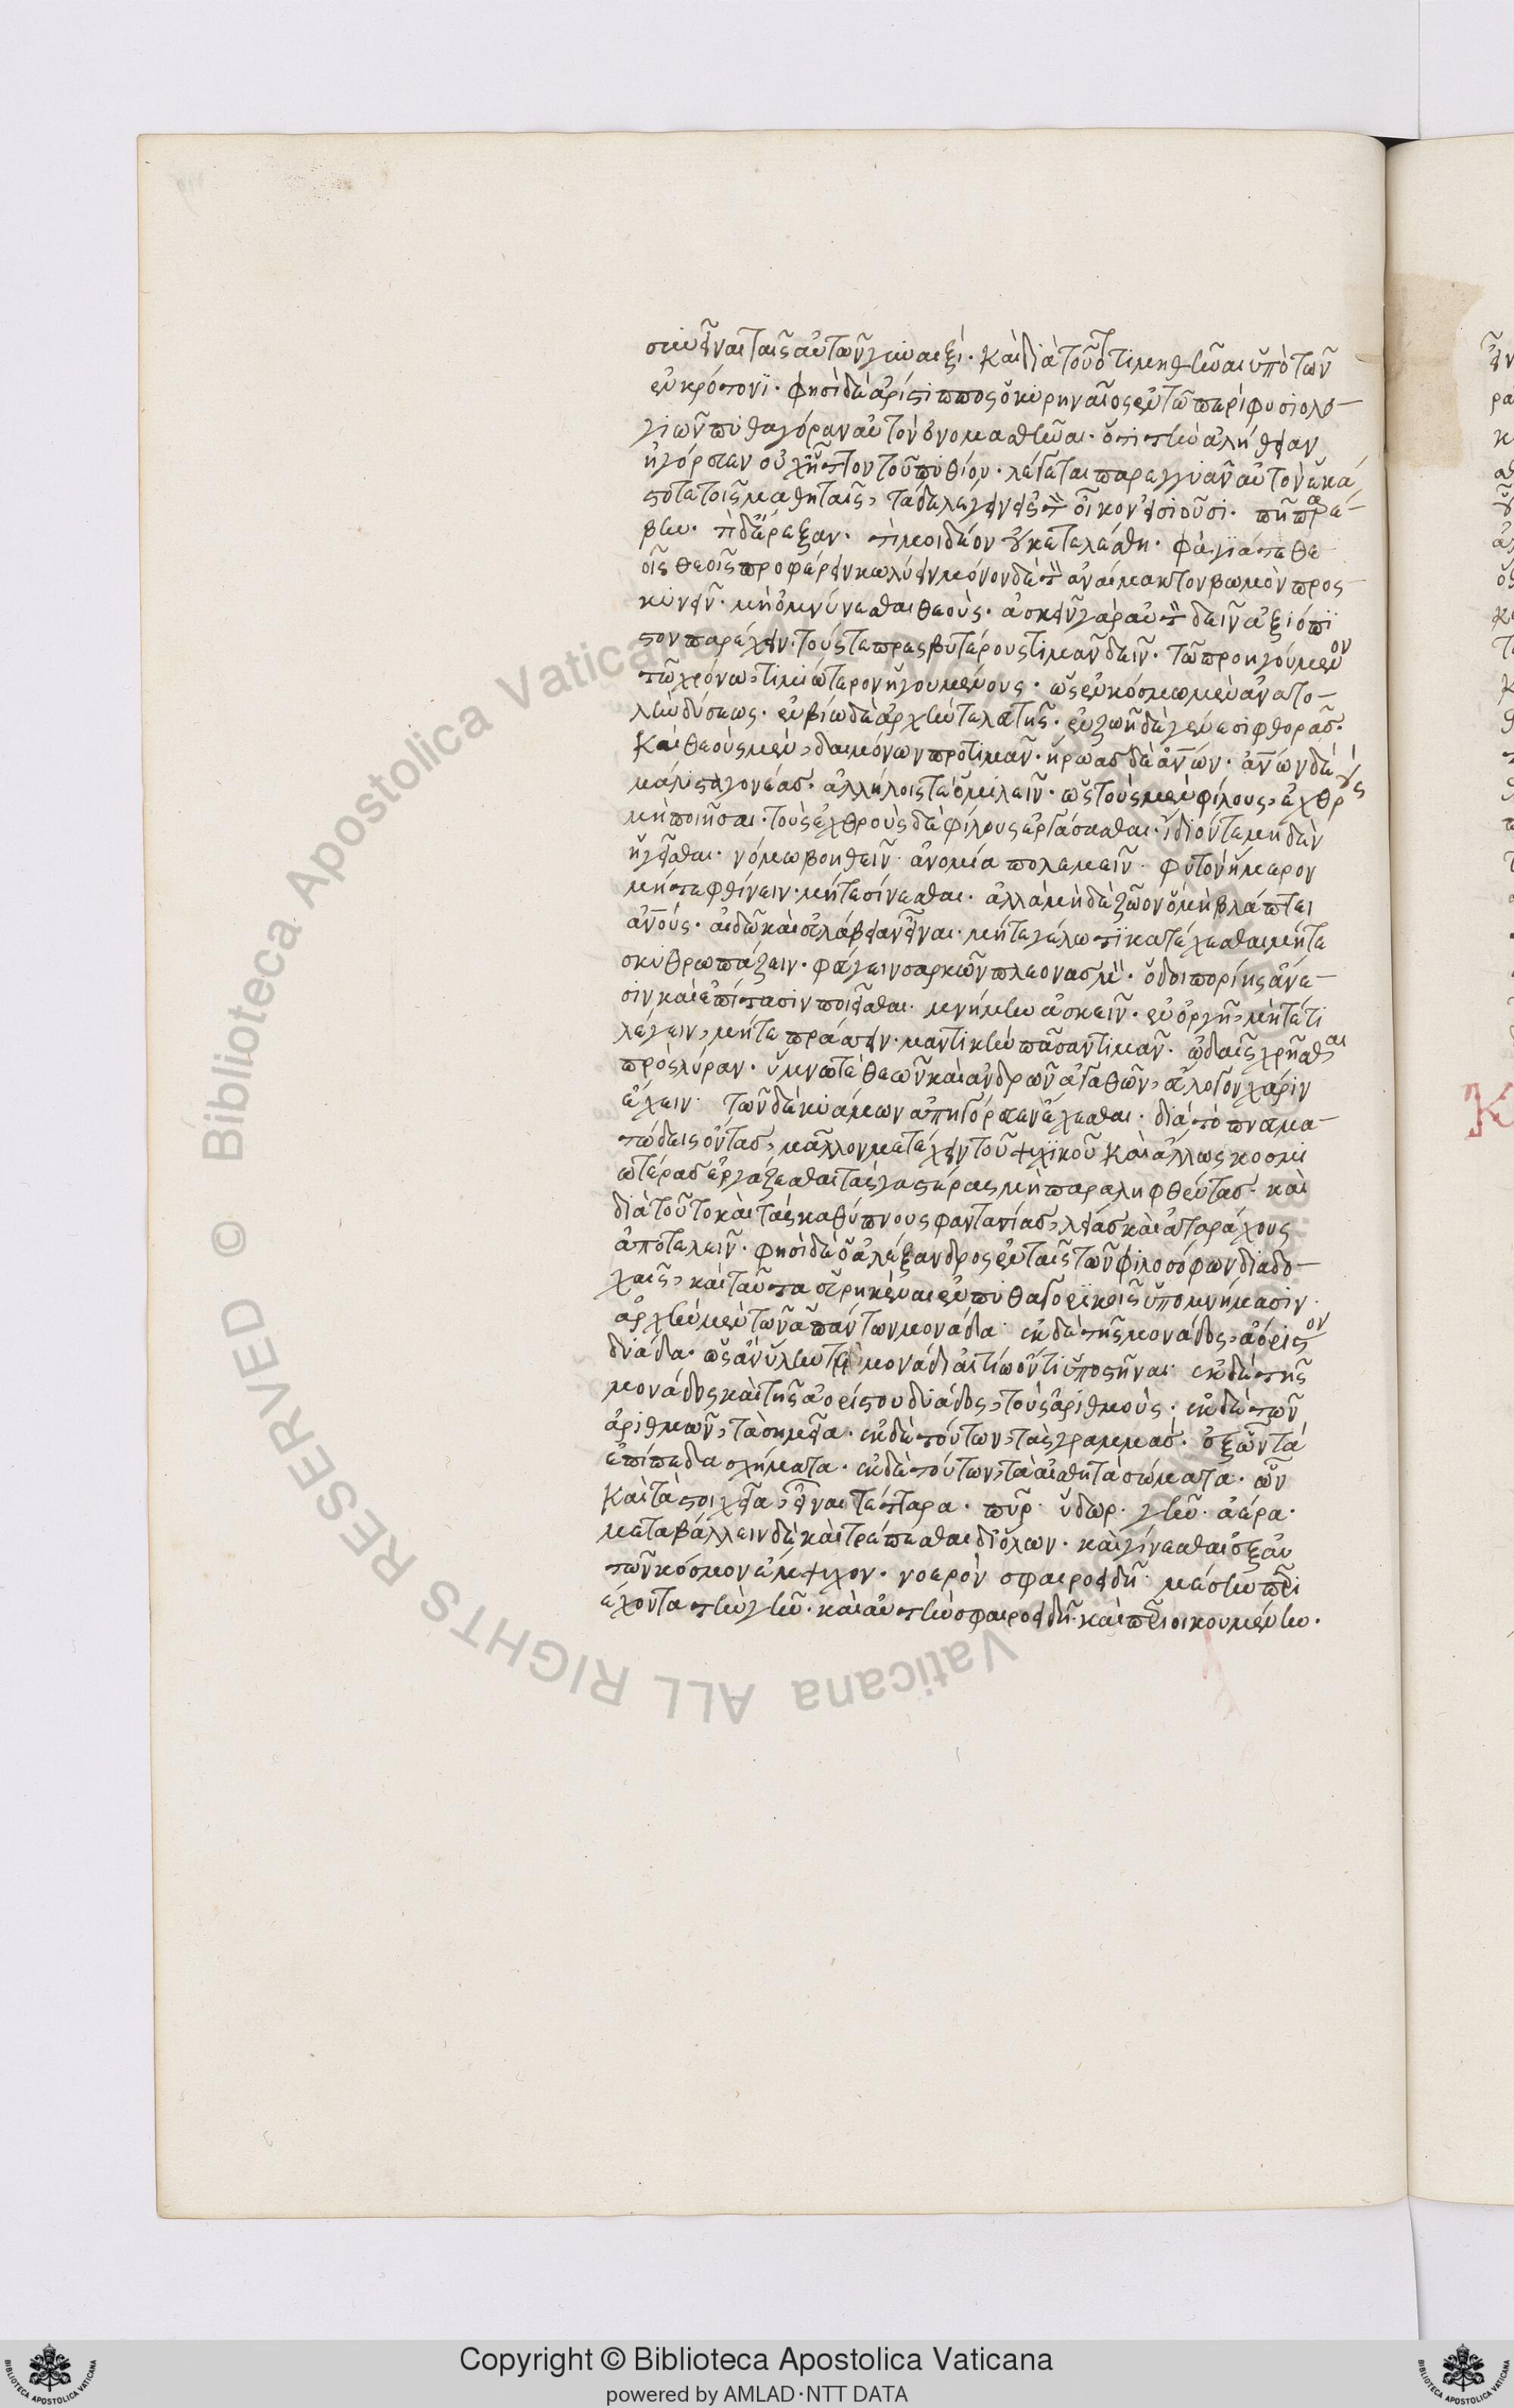 συνεῖναι ταῖς αὐτῶν γυναιξί· καὶ διὰ τοῦτο τιμηθῆναι ὑπὸ τῶν
ἐν κρότονϊ· φησὶ δὲ ἀρίστιππος ὁ κυρηναῖος ἐν τῶ περὶ φυσιολο-
γιῶν πυθαγόραν αὐτὸν ὀνομασθῆναι· ὅτι τὴν ἀλήθειαν
ἠγόρευεν οὐχ ἧττον τοῦ πυθίου· λέγεται παρεγγυᾶν αὐτὸν ἑκά
στοτε τοῖς μαθηταῖς, τάδε λέγειν εἰς τὸν οἶκον εἰσιοῦσι· πῆ παρέ-
βην· τὶ δ' ἔρεξαν· τί μοι δέον οὐκ ετελέσθη· φάγια τε θε
οῖς θεοῖς προφέρειν κωλύειν μόνον δὲ τὸν ἀναίμακτον βωμὸν προσ-
κυνεῖν· μὴ ὀμνύνεσθαι θεοὺς· ἀσκεῖν γὰρ αὐτὸν δεῖν ἀξιόπι
στον παρέχειν· τούς τε πρεσβυτέρους τιμᾶν δεῖν· τῶ προηγούμενον
τῶ χρόνω, τιμιώτερον ἡγουμένους· ὡς ἐν κόσμω μὲν ἀνατο-
λὴν δύσεως· ἐν βίω δὲ ἀρχὴν τελετῆς· ἐν ζωῆ δὲ γένεσι φθορᾶς·
καὶ θεοὺς μὲν, δαιμόνων προτιμᾶν· ἥρωας δὲ ἀνων· ἀνων δὲ
μάλιστα γονέας· ἀλλήλοις τε ὁμιλεῖν· ὡς τοὺς μὲν φίλους, ἐχθρους
μὴ ποιῆσαι· τοὺς ἐχθροὺς δὲ φίλους ἐργάσασθαι· ἴδιόν τε μηδὲν
ἡγεῖσθαι· νόμω βοηθεῖν· ἀνομία πολεμεῖν· φυτὸν ἥμερον
μήτε φθίνειν· μήτε σίνεσθαι· ἀλλὰ μὴ δὲ ζῶον ὃ μὴ βλάπτει
ἀνους· αἰδῶ καὶ εὐλάβειαν εἶναι· μήτε γέλωτϊ κατέχεσθαι μήτε
σκυθρωπάζειν· φάγειν σαρκῶν πλεονασμὸν· ὁδοιπορίης ἄνε-
σιν καὶ ἐπίτασιν ποιεῖσθαι· μνήμην ἀσκεῖν· ἐν ὀργῆ, μήτέ τι
λέγειν, μήτε πράσσειν· μαντικὴν πᾶσαν τιμᾶν· ὠδαῖς χρῆσθαι
πρὸς λύραν· ὕμνω τὲ θεῶν καὶ ἀνδρῶν ἀγαθῶν, εὔλογον χάριν
ἔχειν· τῶν δὲ κυάμων ἀπηγόρευεν ἔχεσθαι· διὰ τὸ πνευμα-
τώδεις ὄντας, μᾶλλον μετέχειν τοῦ ψυχϊκοῦ καὶ ἄλλως κοσμι
ωτέρας ἐργάζεσθαι τὰς γαστέρας μὴ παραληφθέντας· καὶ
διὰ τοῦτο καὶ τὰς καθύπνους φαντασίας, λείας καὶ ἀταράχους
ἀποτελεῖν· φησὶ δὲ ὁ ἀλέξανδρος ἐν ταῖς τῶν φιλοσόφων διαδο-
χαῖς, καὶ ταῦτα εὑρηκέναι ἐν πυθαγορϊκοῖς ὑπομνήμασιν·
ἀρχὴν μὲν τῶν ἁπάντων μονάδα· ἐκ δὲ τῆς μονάδος, ἀόριστον
δυάδα· ὡς ἂν ὕλην τῆ μονάδι αἰτίω ὄντι ὑποστῆναι· ἐκ δὲ τῆς
μονάδος καὶ τῆς ἀορίστου δυάδος, τοὺς ἀριθμούς· ἐκ δὲ τῶν
ἀριθμῶν, τὰ σημεῖα· ἐκ δὲ τούτων, τὰς γραμμάς· ἐξ ὧν τὰ
ἐπίπεδα σχήματα· ἐκ δὲ τούτων, τὰ αἰσθητὰ σώματα· ὧν
καὶ τὰ στοιχεῖα, εἶναι τέτταρα· πῦρ· ὕδωρ· γῆν· ἀέρα·
μεταβάλλειν δὲ καὶ τρέπεσθαι δι' ὅλων· καὶ γίνεσθαι ἐξ αὐ
τῶν κόσμον ἔμψυχον· νοερὸν σφαιροειδῆ· μέσην περι
έχοντα τὴν γῆν· καὶ αὐτὴν σφαιροειδῆ· καὶ περιοικουμένην·
Copyright © Biblioteca Apostolica Vaticana
powered by AMLAD·NTT DATA